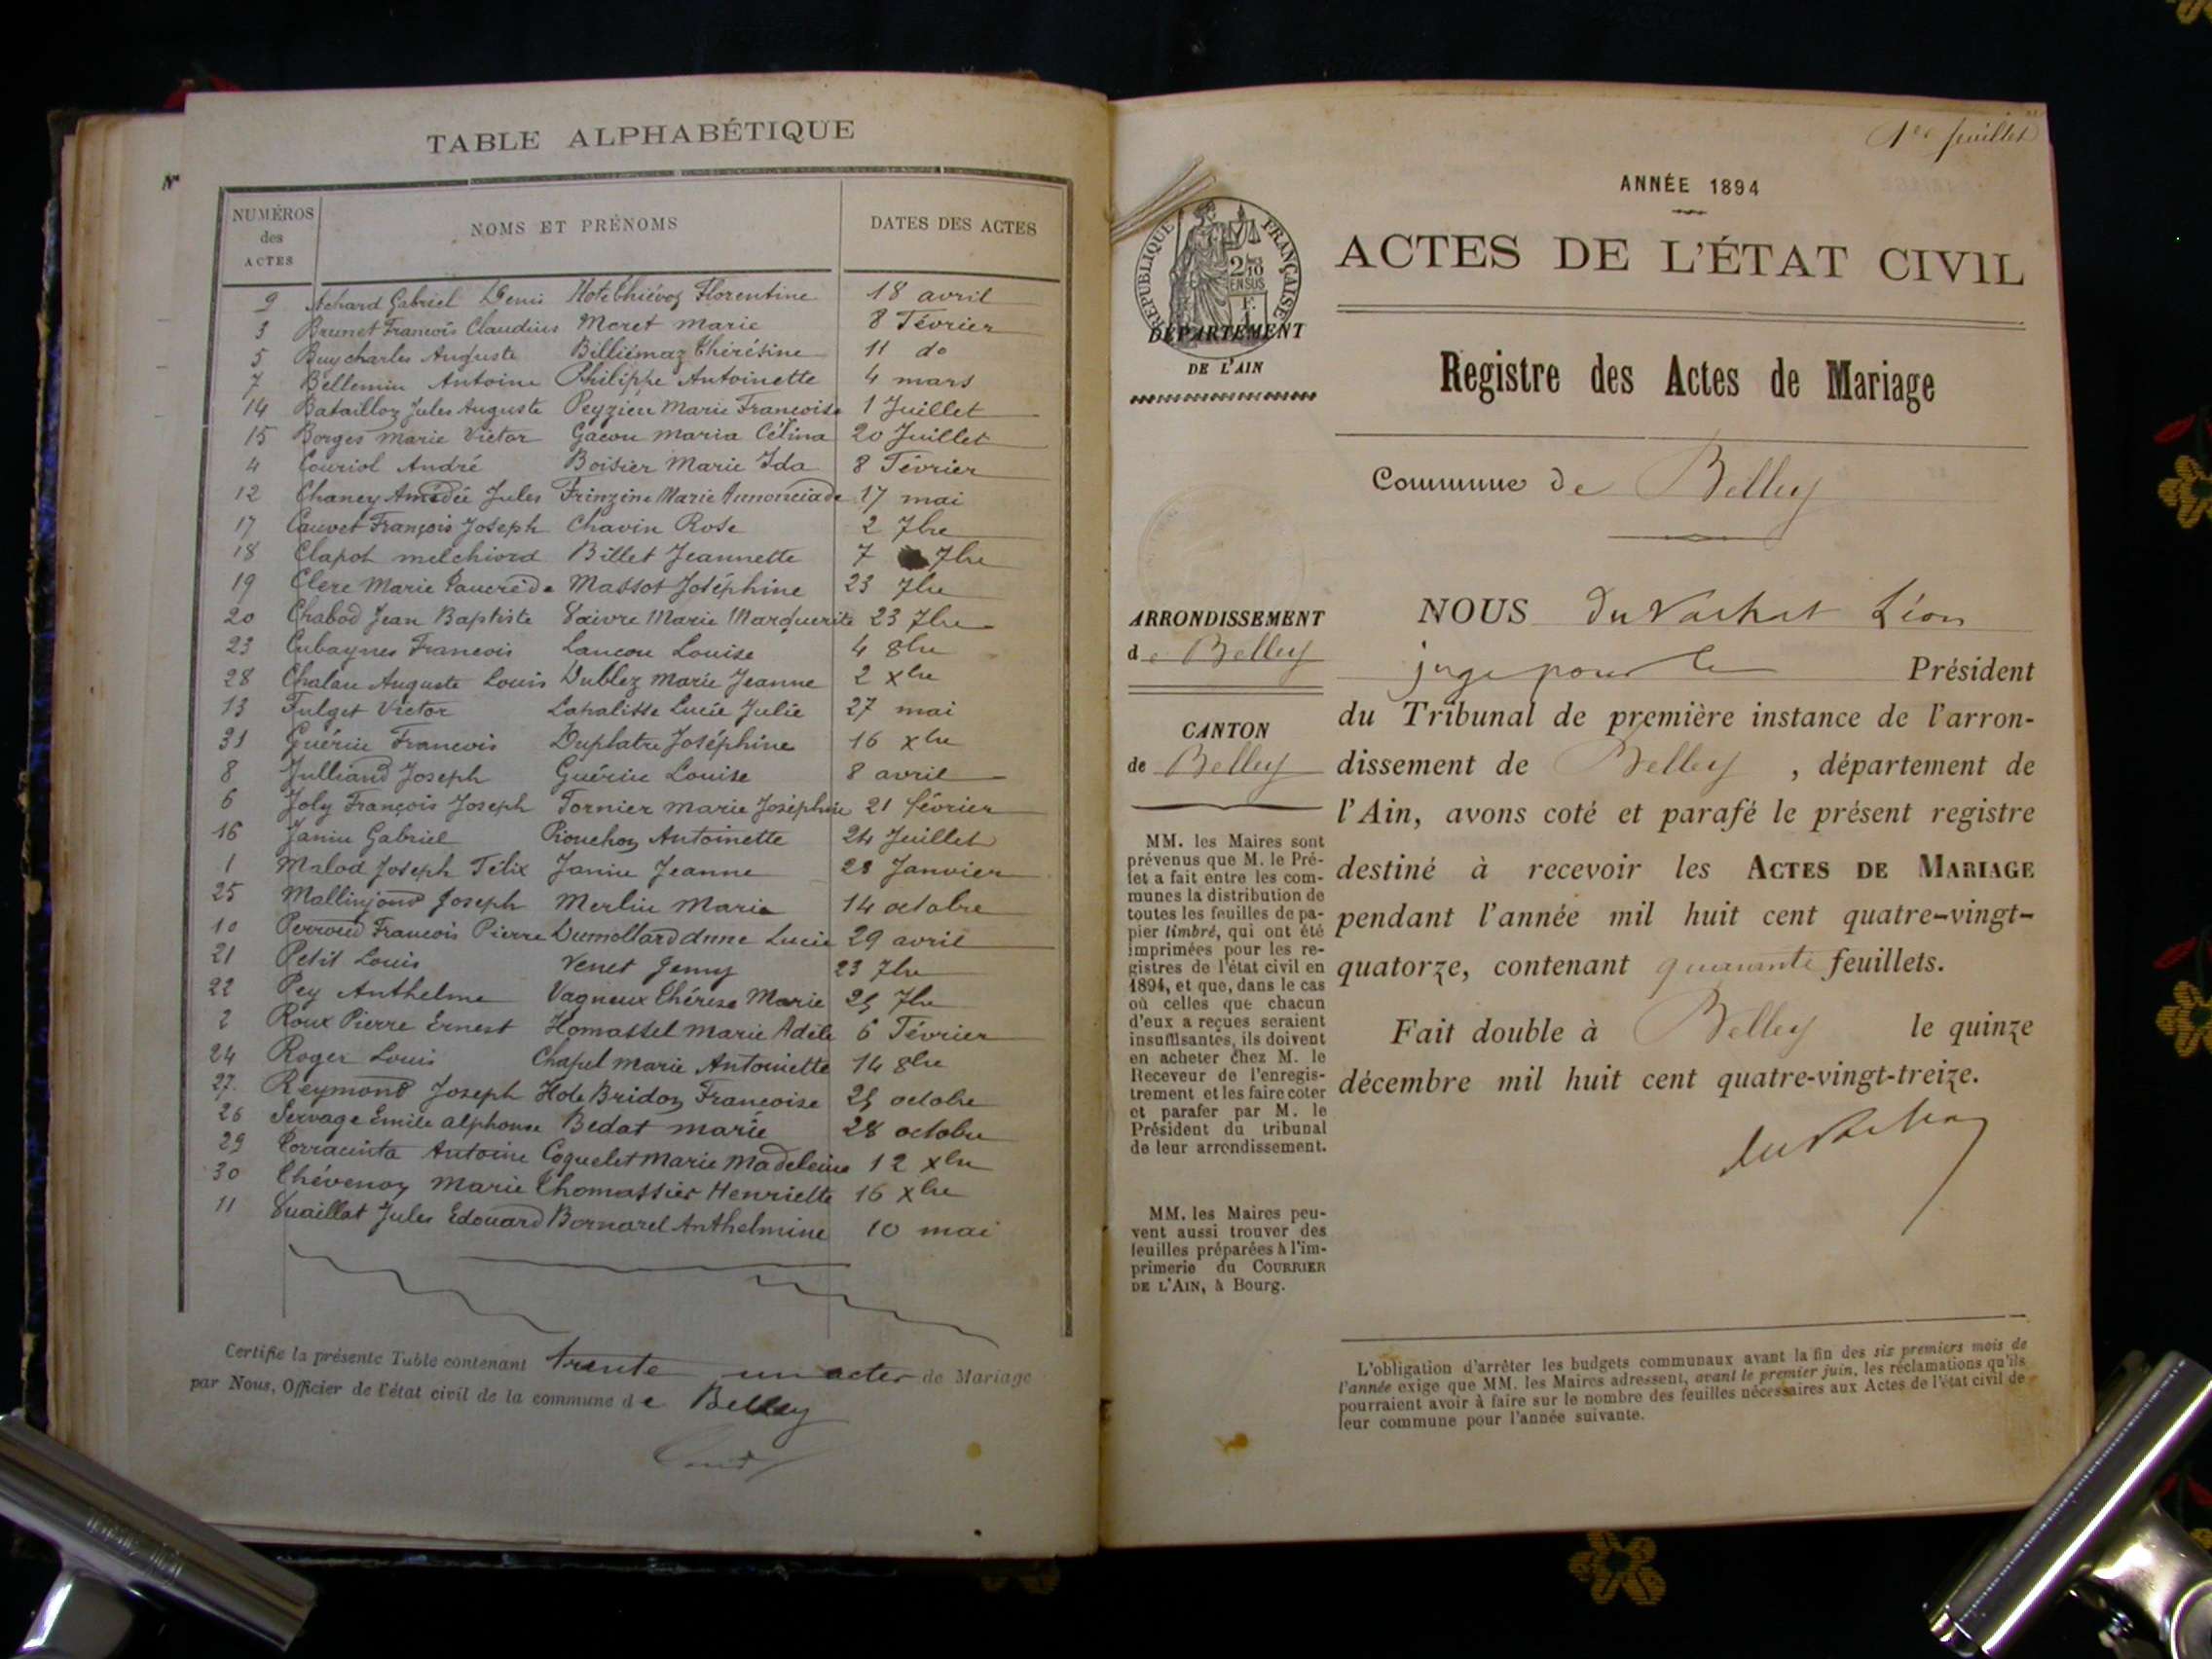 TABLE ALPHABÉTIQUE
NUMÉROS des ACTES
NOMS ET PRÉNOMS
DATES DES ACTES
9 Achard Gabriel Denis Florentine 18 avril
3 Brunet Francois Claudius Moret marie 8 Février
5 Buy charles Auguste Billiémaz Thérésine 11 do
7 Bellemin Antoine Philippe Antoinette 4 mars
14 Batailloz Jules Auguste Peyzieu Marie Francoise 1 Juillet
15 Borges marie Victor Gacon maria Célina 20 Juillet
4 Couriol André Boisier Marie Ida 8 Février
12 Chaney Amédée Jules Frinzine Marie Annonciade 17 mai
17 Cauvet François Joseph Chavin Rose 2 7bre
18 Clapot melchiord Billet Jeannette 7 7bre
19 Clerc Marie Massot Joséphine 23 7bre
20 Chabod Jean Baptiste Marie Marguerite 23 7bre
23 Cubaynes Francois Lancon Louise 4 8bre
28 Chalan Auguste Louis Dublez marie Jeanne 2 xbre
13 Fulget Victor Lucie Julie 27 mai
31 Guérin Francois Duplatre Joséphine 16 xbre
8 Julliand Joseph Guérin Louise 8 avril
6 Joly François Joseph Tornier marie Joséphine 21 février
16 Janin Gabriel Antoinette 24 Juillet
1 Malod Joseph Félix Janin Jeanne 28 Janvier
25 Mallinjoud Joseph Merlin Marie 14 octobre
10 Perroud Francois Pierre Dumollard Lucie 29 avril
21 Petit Louis Venet Jenny 23 7bre
22 Pey Anthelme Vagneux Thérèse Marie 25 7bre
2 Roux Pierre Ernest Homassel marie Adèle 6 Février
24 Roger Louis Chapel marie Antoinette 14 8bre
27 Reymond Joseph Françoise 25 octobre
26 Servage Emile alphonse Bedat marie 28 octobre
29 Torracinta Antoine Coquelet Marie Madeleine 12 xbre
30 Thévenoz Marie Thomassier Henriette 16 xbre
11 Vuaillat Jules Edouard Bornarel Anthelmine 10 mai
Certifie la présente Table contenant trente un actes de Mariage
par Nous, Officier de l'état civil de la commune de Belley
1er feuillet
ANNÉE 1894
ACTES DE L'ÉTAT CIVIL
RÉPUBLIQUE FRANÇAISE
DÉPARTEMENT
DE L'AIN
Registre des Actes de Mariage
Commune de Belley
ARRONDISSEMENT
de Belley
CANTON
de Belley
MM. les Maires sont
prévenus que M. le Pré-
fet a fait entre les com-
munes la distribution de
toutes les feuilles de pa-
pier timbré, qui ont été
imprimées pour les re-
gistres de l'état civil en
1894, et que, dans le cas
où celles que chacun
d'eux a reçues seraient
insuffisantes, ils doivent
en acheter chez M. le
Receveur de l'enregis-
trement et les faire coter
et parafer par M. le
Président du tribunal
de leur arrondissement.
MM. les Maires peu-
vent aussi trouver des
feuilles préparées à l'im-
primerie du COURRIER
DE L'AIN, à Bourg.
NOUS du Vachat Léon
juge pour le Président
du Tribunal de première instance de l'arron-
dissement de Belley, département de
l'Ain, avons coté et parafé le présent registre
destiné à recevoir les ACTES DE MARIAGE
pendant l'année mil huit cent quatre-vingt-
quatorze, contenant quarante feuillets.
Fait double à Belley le quinze
décembre mil huit cent quatre-vingt-treize.
du Vachat
L'obligation d'arrêter les budgets communaux avant la fin des six premiers mois de
l'année exige que MM. les Maires adressent, avant le premier juin, les réclamations qu'ils
pourraient avoir à faire sur le nombre des feuilles nécessaires aux Actes de l'état civil de
leur commune pour l'année suivante.